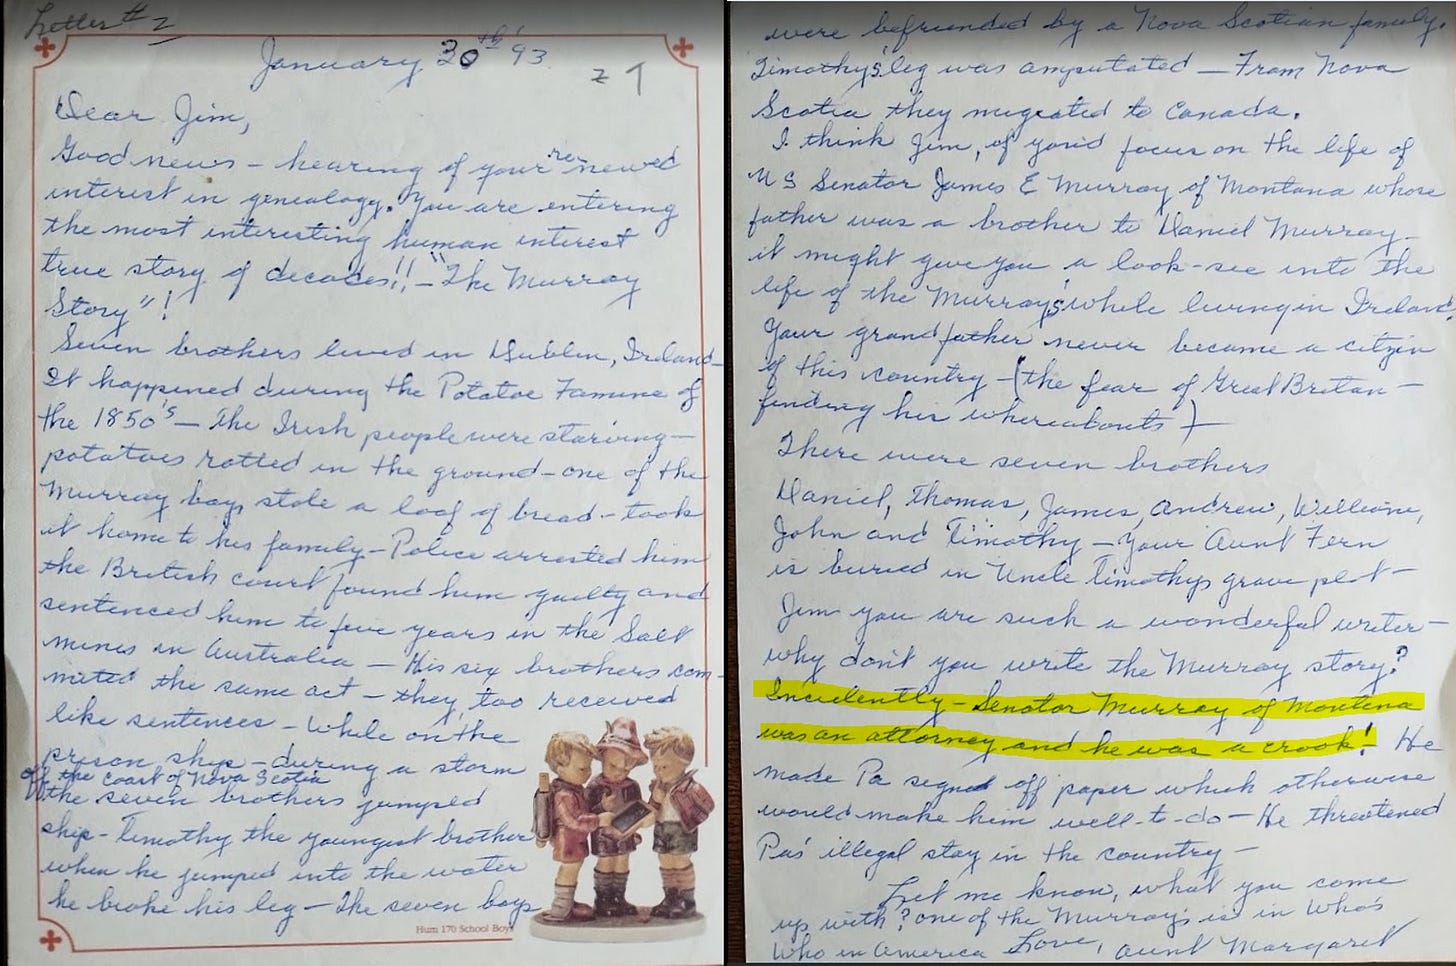 Letter # 2
January 30th '93
z 1
Dear Jim,
Good news - hearing of your re-newed
interest in genealogy. You are entering
the most interesting human interest
true story of decades!! - "The Murray
Story"!
Seven brothers lived in Dublin, Ireland -
It happened during the Potatoe Famine of
the 1850's - The Irish people were starving -
potatoes rotted in the ground - one of the
Murray boys stole a loaf of bread - took
it home to his family - Police arrested him
the British court found him guilty and
sentenced him to five years in the Salt
mines in Australia - His six brothers com-
mited the same act - they, too received
like sentences - While on the
prison ship - during a storm
off the coast of Nova Scotia
the seven brothers jumped
ship - Timothy the youngest brother
when he jumped into the water
he broke his leg - The seven boys
Hum 170 School Boys
were befriended by a Nova Scotian family.
Timothy's leg was amputated - From Nova
Scotia they migrated to Canada.
I think Jim, if you'd focus on the life of
US Senator James E Murray of Montana whose
father was a brother to Daniel Murray -
it might give you a look-see into the
life of the Murray's while living in Ireland.
Your grandfather never became a citizin
of this country - (the fear of Great Britan -
finding his whereabouts) -
There were seven brothers
Daniel, Thomas, James, Andrew, William,
John and Timothy - Your Aunt Fern
is buried in Uncle Timothys grave plot -
Jim you are such a wonderful writer -
why don't you write the Murray story?
Incidently - Senator Murray of Montana
was an attorney and he was a crook! He
made Pa signed off paper which otherwise
would make him well-to-do - He threatened
Pa's illegal stay in the country -
Let me know, what you come
up with? one of the Murray's is in Who's
Who in America Love, Aunt Margaret